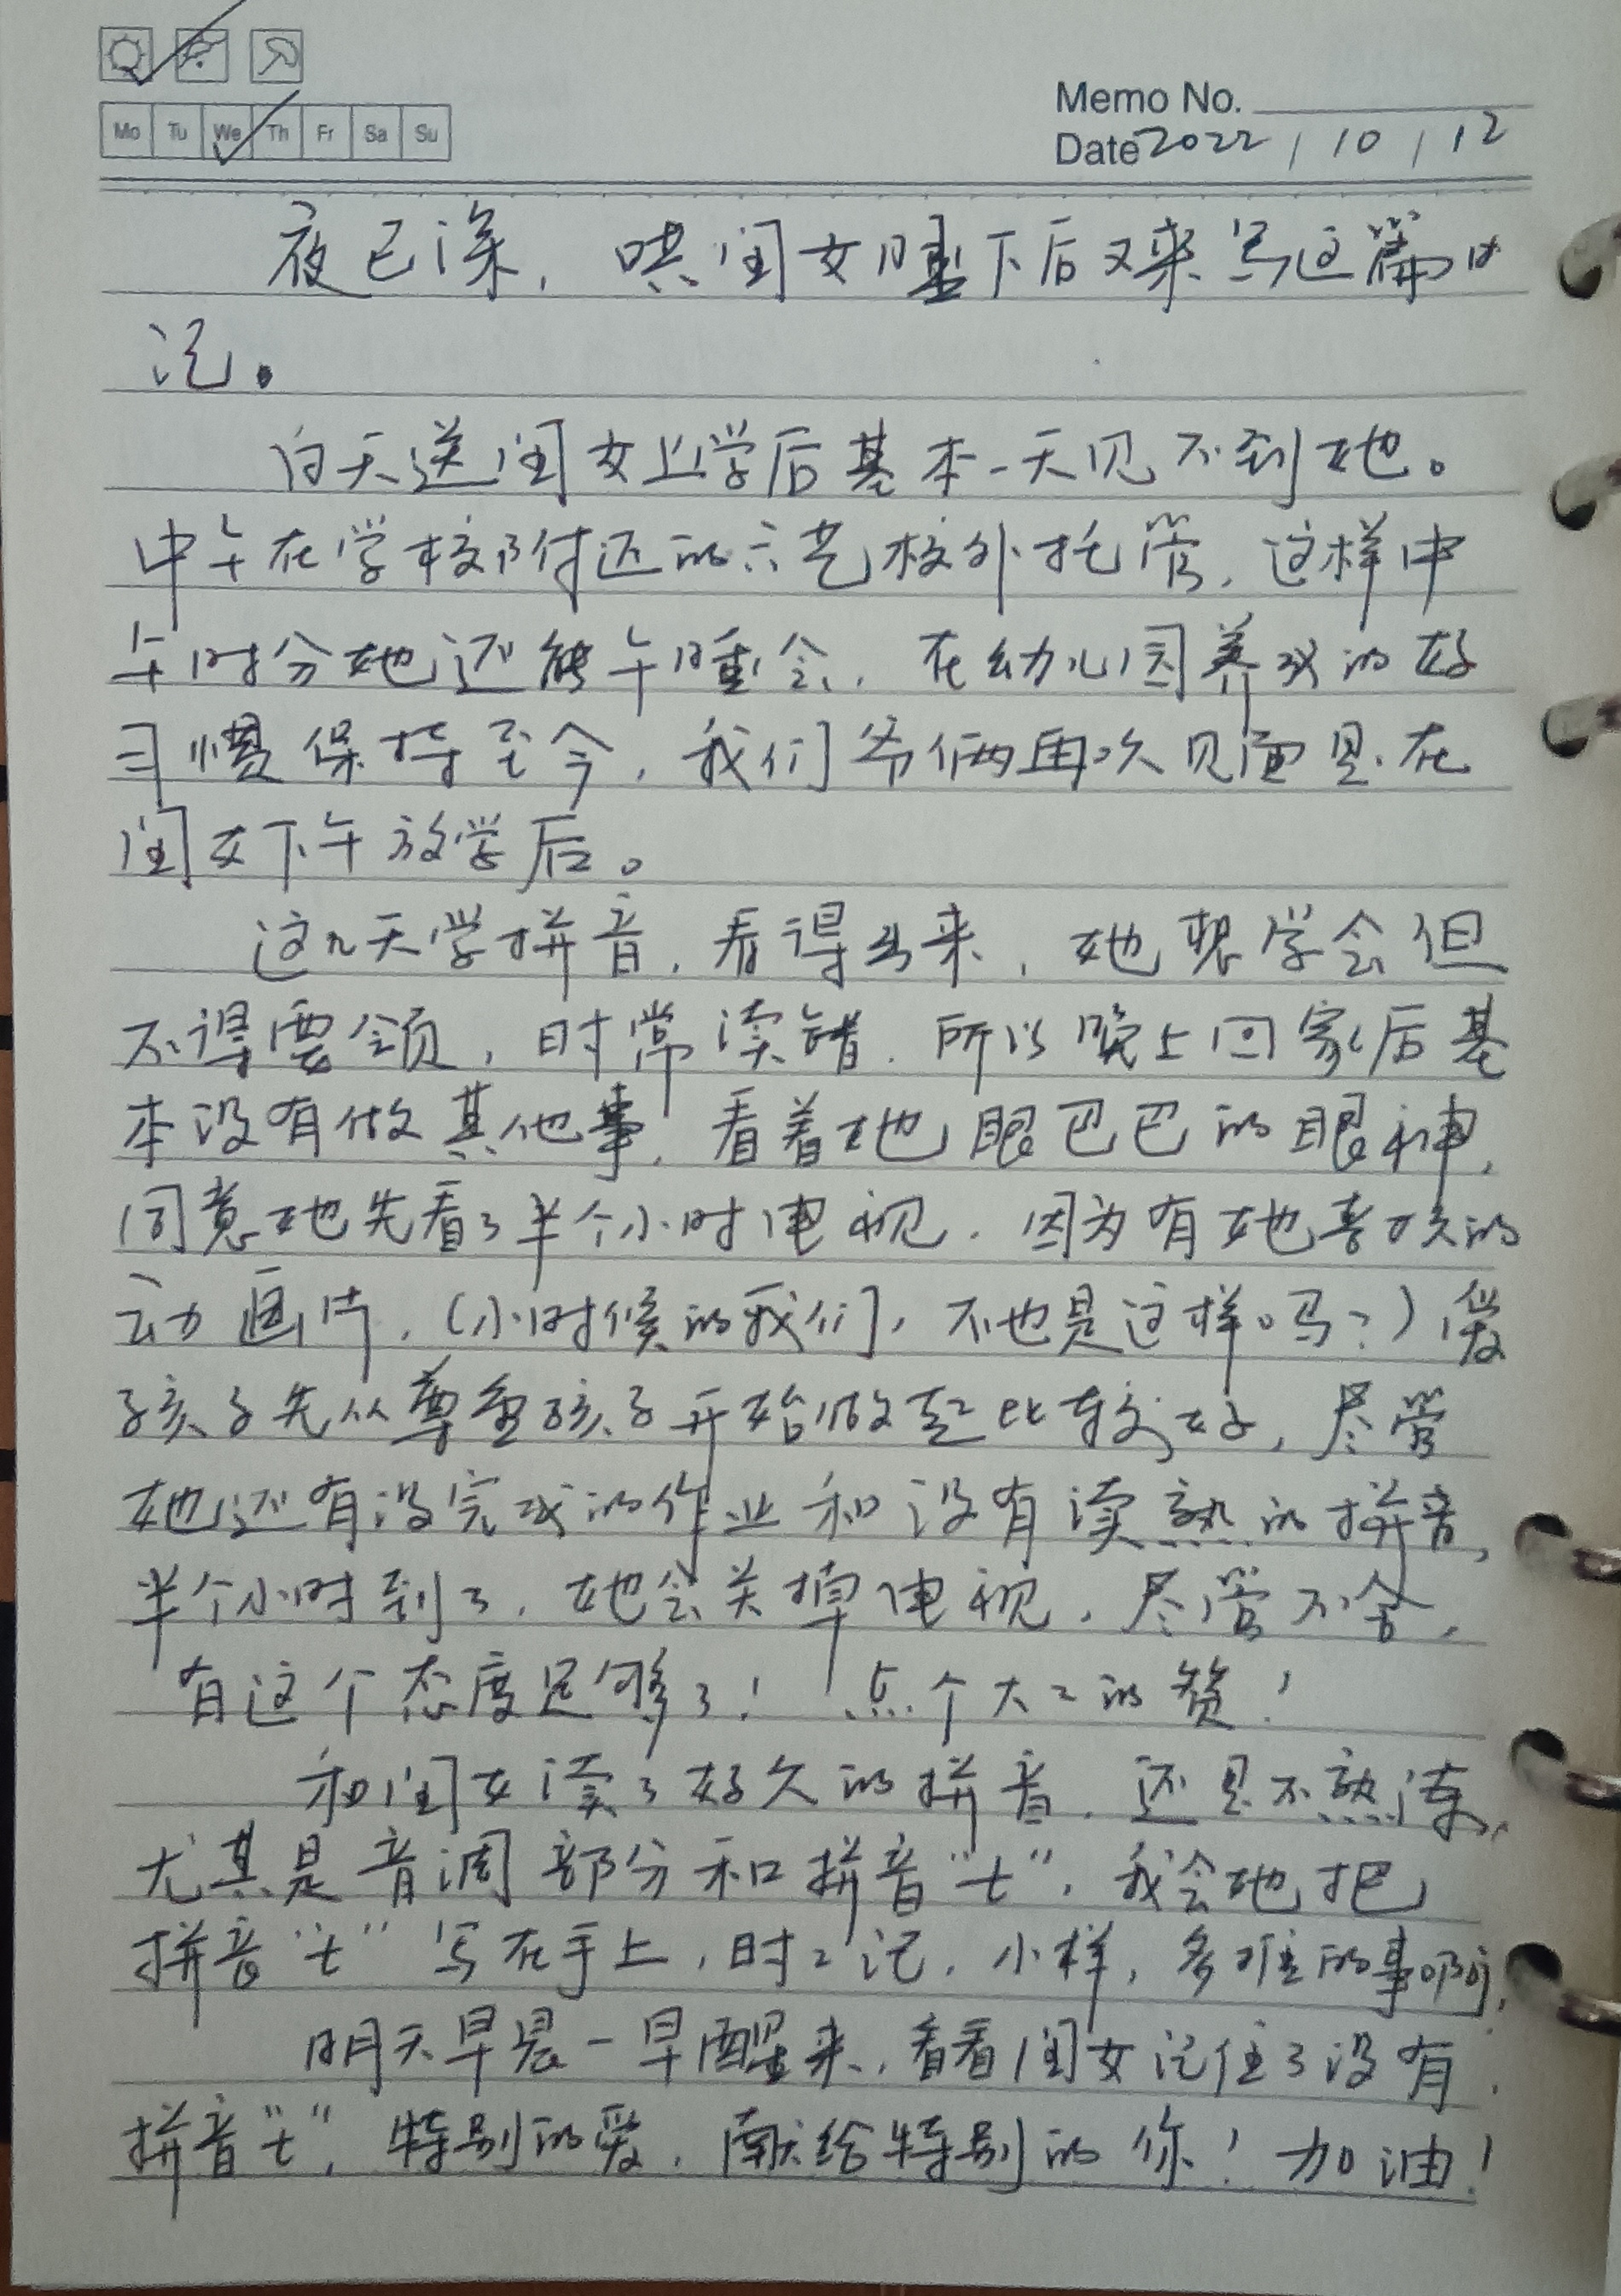 Memo No.
Mo Tu We Th Fr Sa Su
Date 2022 / 10 / 12
夜已深，哄闺女睡下后又来写这篇日
记。
白天送闺女上学后基本一天见不到她。
中午在学校附近的六艺校外托管，这样中
午时分她还能午睡会，在幼儿园养成的好
习惯保持至今，我们爷俩再次见面是在
闺女下午放学后。
这几天学拼音，看得出来，她想学会但
不得要领，时常读错，所以晚上回家后基
本没有做其他事，看着她眼巴巴的眼神，
同意她先看了半个小时电视，因为有她喜欢的
动画片，（小时候的我们，不也是这样吗？）爱
孩子先从尊重孩子开始做起比较好，尽管
她还有没完成的作业和没有读熟的拼音，
半个小时到了，她会关掉电视，尽管不舍，
有这个态度足够了！点个大大的赞！
和闺女读了好久的拼音，还是不熟练，
尤其是音调部分和拼音“t”，我会她把
拼音“t”写在手上，时时记，小样，多难的事啊，
明天早晨一早醒来，看看闺女记住了没有，
拼音“t”，特别的爱，献给特别的你！加油！